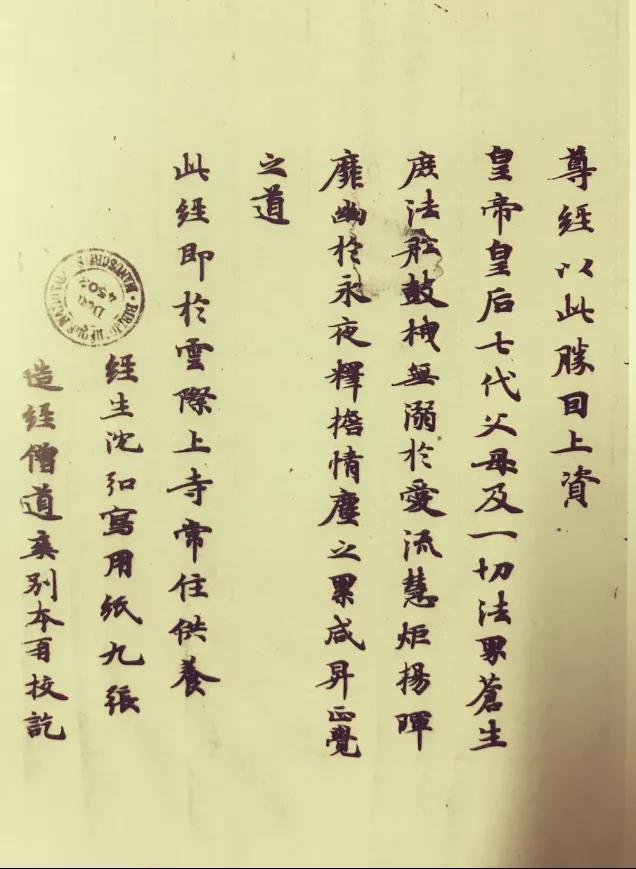 尊經以此勝因上資
皇帝皇后七代父母及一切法界蒼生
庶法舩鼓栧無溺於愛流慧炬揚暉
靡幽於永夜釋擔情塵之累咸昇正覺
之道
此經即於雲際上寺常住供養
經生沈弘寫用紙九張
造經僧道奭別本再校訖
MANUSCRITS